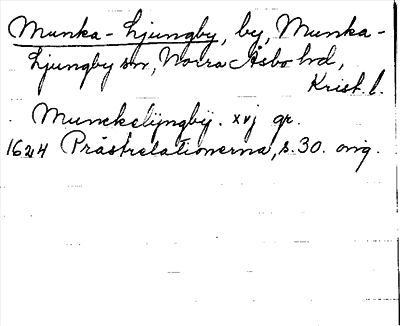 Munka-Ljungby, by, Munka-
Ljungby sn, Norra Åsbo hd,
Krist. l.
Munckelijngbÿ. xvj gr.
1624 Prästrelationerna, s. 30. orig.